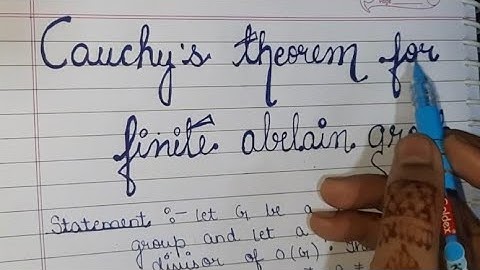 Cauchy's theorem for
finite abelain gro
Statement :- Let G be a
group and let a
divisor of O(G).